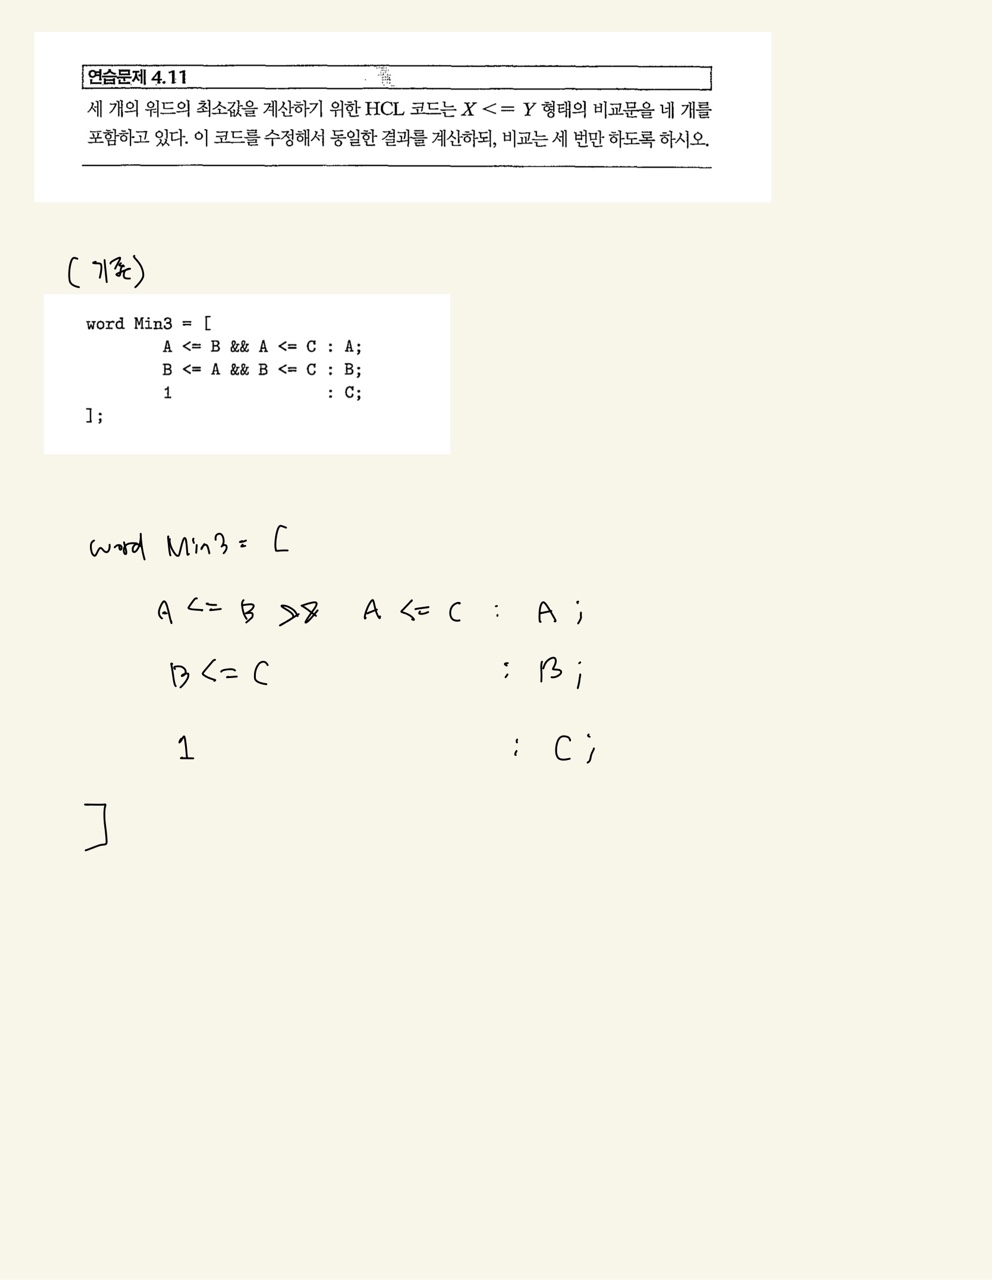 연습문제 4.11
세 개의 워드의 최소값을 계산하기 위한 HCL 코드는 X <= Y 형태의 비교문을 네 개를
포함하고 있다. 이 코드를 수정해서 동일한 결과를 계산하되, 비교는 세 번만 하도록 하시오.
(기존)
word Min3 = [
A <= B && A <= C : A;
B <= A && B <= C : B;
1 : C;
];
word Min3 = [
A <= B && A <= C : A;
B <= C : B;
1 : C;
]